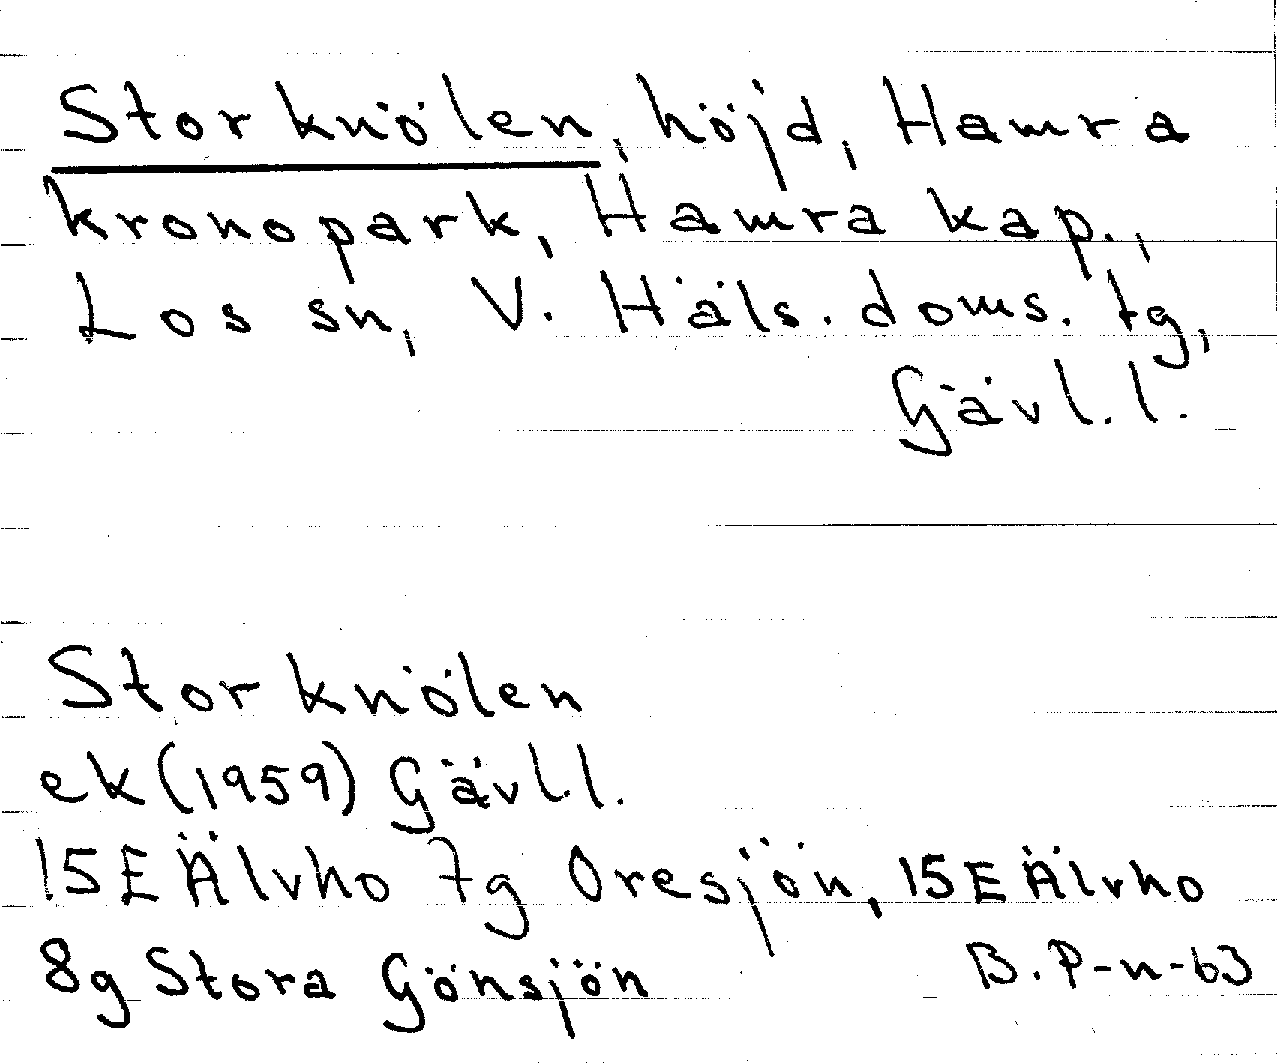 Storknölen, höjd, Hamra
kronopark, Hamra kap.,
Los sn, V. Häls. doms. tg,
Gävl. l.
Storknölen
ek (1959) Gävl.l.
15E Älvho 7g Oresjön, 15E Älvho
8g Stora Gönsjön B. P-n-63